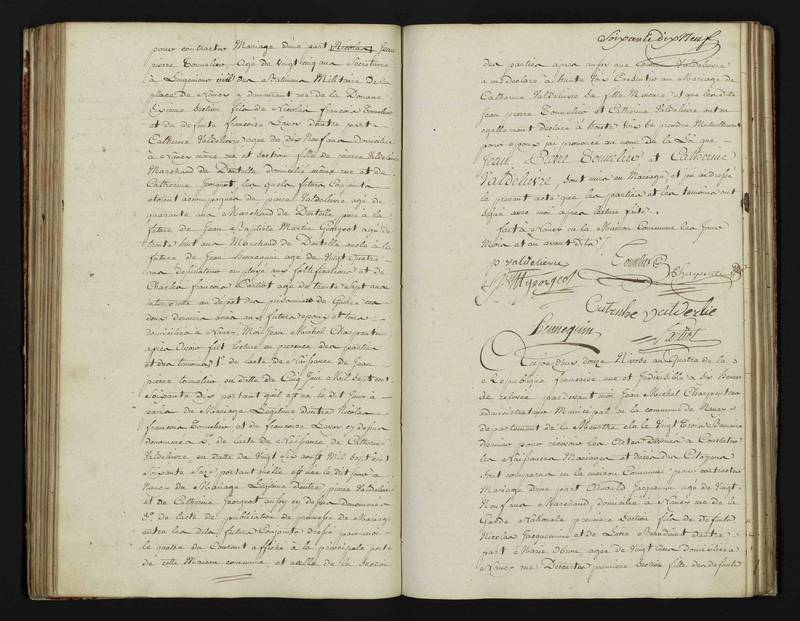 pour contracter Mariage dune part Nicolas Jean
pierre Tourelier agé de vingt cinq ans Secretaire
à Lingenieur des Batimens Militaire de la
place de Nancy y demeurant rue de la Douane
sixieme section fils de Nicolas francois Tourelier
et de defunte francoise Lavor dautre part
Catherine Valdelievre agée de dix Neuf ans domiciliée
à Nancy même rue et section fille de pierre Valdelievre
Marchand de Dentelle domicilié même rue et de
Catherine Georgeot, les quels futurs Conjoints
etoient accompagnés de pierre Valdelievre agé de
quarante ans Marchand de Dentelle, pere a la
future de Jean Baptiste Martin Georgeot agé de
trente huit ans Marchand de Dentelle oncle à la
future de Jean Hennequin agé de vingt quatre
ans employé aux fortifications et de
Charles francois Parisot agé de trente sept ans
au depot des prisonniers de Guerre
amis aux futurs epoux et tous
domiciliés a Nancy. Moi Jean Michel Charpentier
après avoir fait lecture en presence des parties
et des temoins 1° de lacte de Naissance de Jean
pierre Tourelier en datte du Cinq Juin Mil Sept cent
Soixante dix portant quil est né le dit Jour à
paris du Mariage Legitime dentre Nicolas
francois Tourelier et de francoise Lavor cy dessus
denommés 2° de lacte de Naissance de Catherine
Valdelievre en datte du vingt six aoust Mil Sept cent
Soixante Seize portant quelle est née le dit Jour à
Nancy du Mariage Légitime dentre pierre Valdelievre
et de Catherine Georgeot aussy cy dessus denommés
3° de lacte de publication de promesse de Mariage
entre les dits futurs Conjoints dressé par moi
le quatre du Courant affiché à la principale porte
de cette Maison commune, et acelle de la Section
Soixante dix Neuf
des parties apres aussi que pierre Valdelievre
a eu declaré a haute voix Consentir au Mariage de
Catherine Valdelievre sa fille Mineure et que les dits
Jean pierre Tourelier et Catherine Valdelievre ont eu
egallement declaré à haute voix se prendre Mutuellement
pour epoux jai prononcé au nom de la Loi que
Jean Pierre Tourelier et Catherine
Valdelièvre, sont unis en Mariage et jai dressé
le present acte que les parties et les temoins ont
signé avec moi apres lecture faite.
fait à Nancy en la Maison Commune les Jour
Mois et an avant dits
p. valdelievre
Tourelier
Charpentier
Georgeot
Catrinhe
Hennequin
Parisot
Aujourdhui douze Nivose an Quatre de la
République francaise une et Indivisible a six heures
de relevée pardevant moi Jean Michel Charpentier
administrateur Municipal de la commune de Nancy
departement de la Meurthe élu le vingt trois Brumaire
dernier pour recevoir les Actes destinés à Constater
les Naissances Mariages et decès des Citoyens
sont comparus en la maison Commune pour contracter
Mariage dune part Jacquemin agé de vingt
Neuf ans Marchand, domicilié à Nancy rue de la
Garde Nationale premiere Section fils de defunts
Nicolas Jacquemin et de dautre
part Marie agée de vingt deux domiciliée
a Nancy rue Descartes premiere section fille des defunts